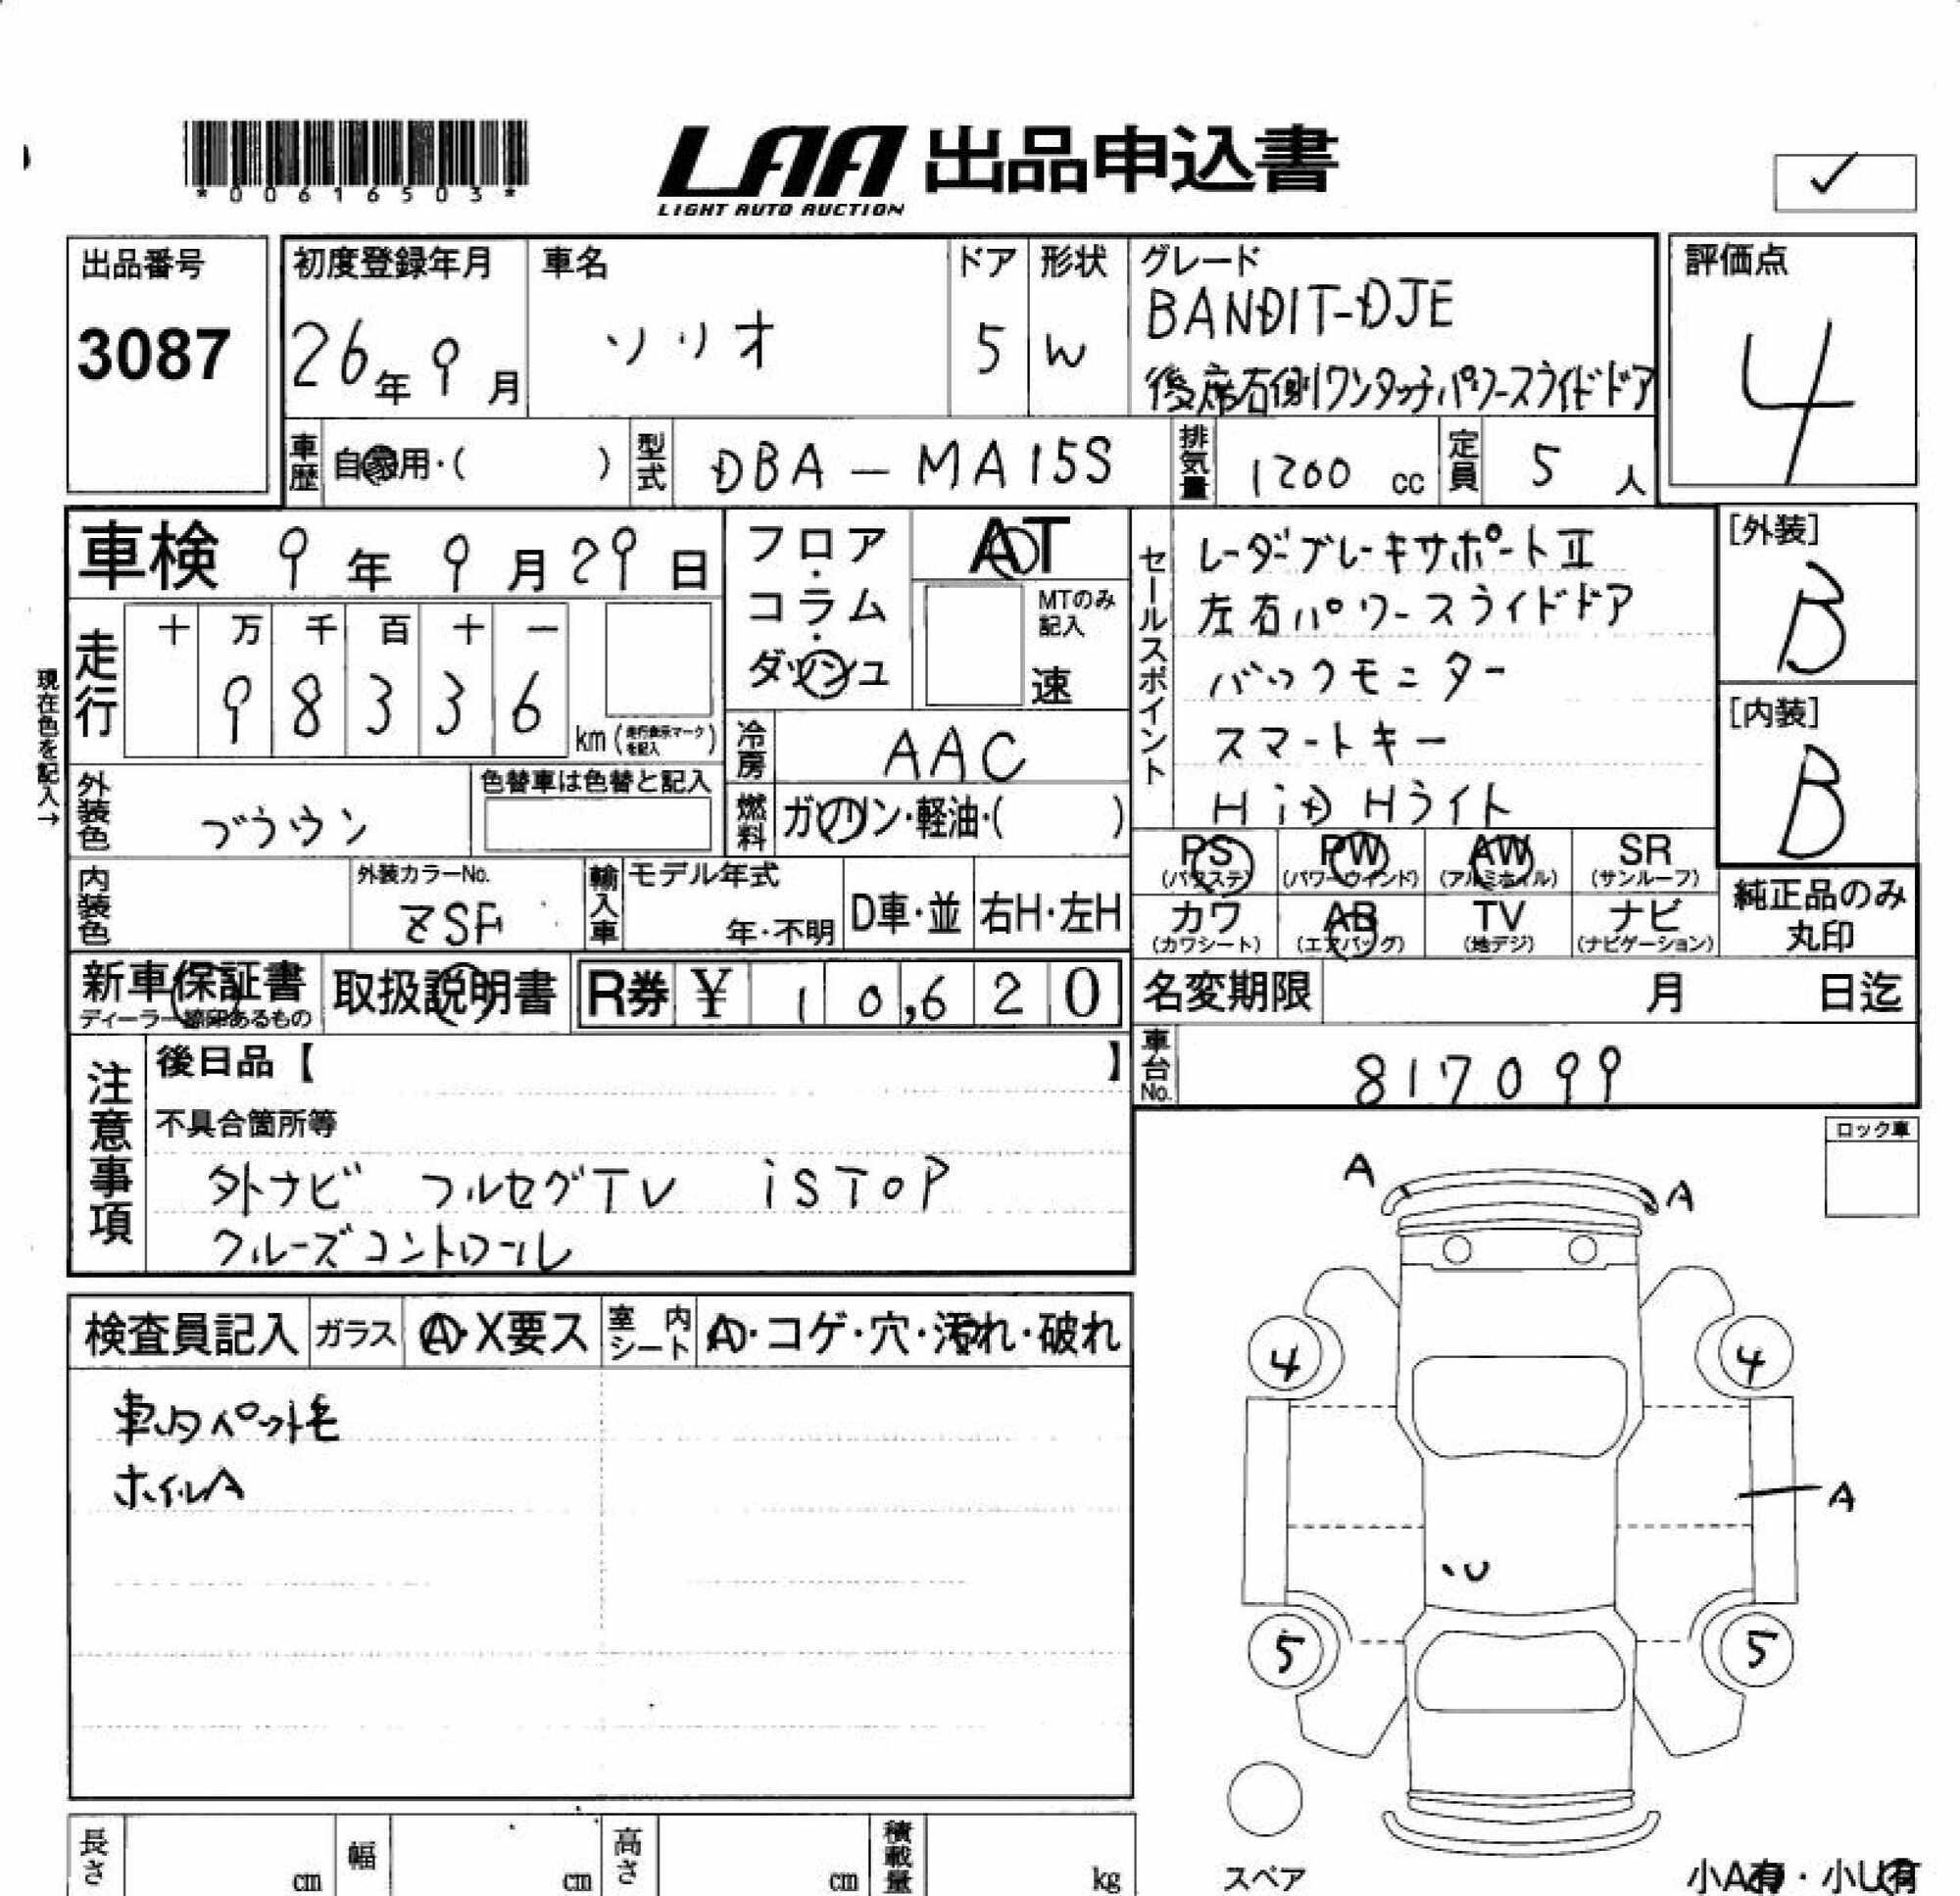 *00616503*
LAA 出品申込書
LIGHT AUTO AUCTION
✓
出品番号
3087
初度登録年月
26年 9月
車名
ソリオ
ドア
5
形状
W
グレード
BANDIT-DJE
後席右側ワンタッチパワースライドドア
評価点
4
車歴
自家用・( )
型式
DBA-MA15S
排気量
1200 cc
定員
5 人
車検 9年 9月29日
走行
十 万 千 百 十 一
9 8 3 3 6
km(走行表示マークを記入)
現在色を記入→
フロア・コラム・ダッシュ
AT
MTのみ記入
速
冷房
AAC
燃料
ガソリン・軽油・( )
外装色
ブラウン
色替車は色替と記入
内装色
外装カラーNo.
輸入車
モデル年式
年・不明
D車・並
右H・左H
セールスポイント
レーダーブレーキサポートⅡ
左右パワースライドドア
バックモニター
スマートキー
HiD Hライト
[外装]
B
[内装]
B
PS
(パワステ)
PW
(パワーウインド)
AW
(アルミホイル)
SR
(サンルーフ)
カワ
(カワシート)
AB
(エアバッグ)
TV
(地デジ)
ナビ
(ナビゲーション)
純正品のみ
丸印
新車保証書
取扱説明書
R券 ¥ 10,620
名変期限 月 日迄
車台No.
817099
注意事項
後日品【 】
不具合箇所等
外ナビ フルセグTV iSTOP
クルーズコントロール
ロック車
検査員記入
ガラス
A・X要ス
室内シート
A・コゲ・穴・汚れ・破れ
車内ペット毛
ホイルA
A A
4 4
A
5 5
スペア
小A有・小U有
長さ cm
幅 cm
高さ cm
積載量 kg